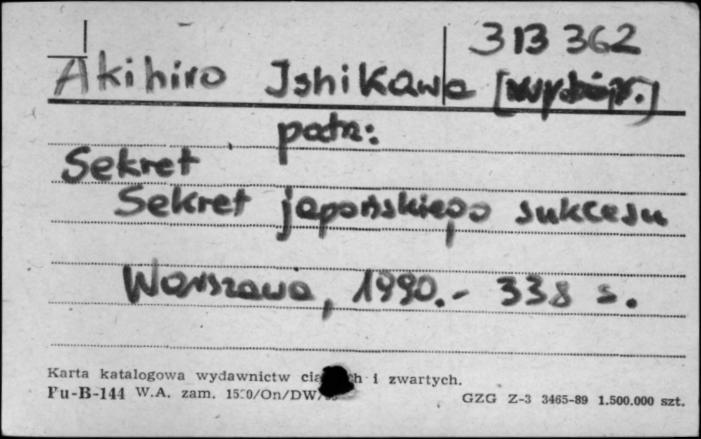 313 362
Akihiro Ishikawa [współpr.]
patrz:
Sekret
Sekret japońskiego sukcesu
Warszawa, 1990.- 338 s.
Karta katalogowa wydawnictw i zwartych.
Fu-B-144 W.A. zam. GZG Z-3 3465-89 1.500.000 szt.